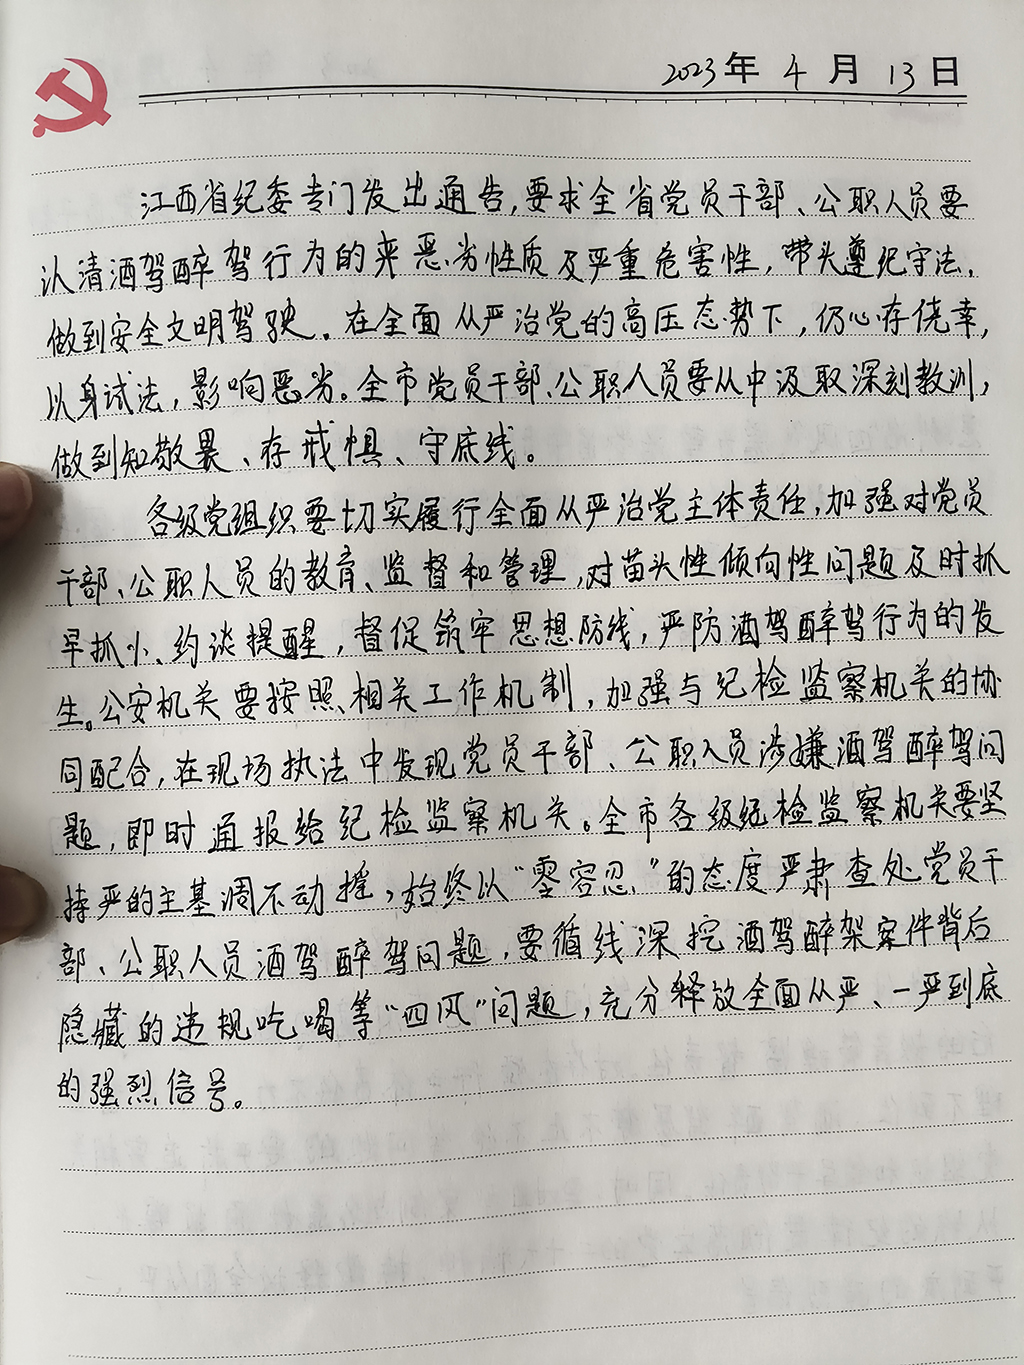 2023年 4 月 13 日
江西省纪委专门发出通告,要求全省党员干部、公职人员要
认清酒驾醉驾行为的来恶劣性质及严重危害性,带头尊纪守法,
做到安全文明驾驶。在全面从严治党的高压态势下,仍心存侥幸,
以身试法,影响恶劣。全市党员干部、公职人员要从中汲取深刻教训,
做到知敬畏、存戒惧、守底线。
各级党组织要切实履行全面从严治党主体责任,加强对党员
干部、公职人员的教育、监督和管理,对苗头性倾向性问题及时抓
早抓小、约谈提醒,督促筑牢思想防线,严防酒驾醉驾行为的发
生。公安机关要按照相关工作机制,加强与纪检监察机关的协
同配合,在现场执法中发现党员干部、公职人员涉嫌酒驾醉驾问
题,即时通报给纪检监察机关。全市各级纪检监察机关要坚
持严的主基调不动摇,始终以“零容忍”的态度严肃查处党员干
部、公职人员酒驾醉驾问题,要循线深挖酒驾醉架案件背后
隐藏的违规吃喝等“四风”问题,充分释放全面从严、一严到底
的强烈信号。